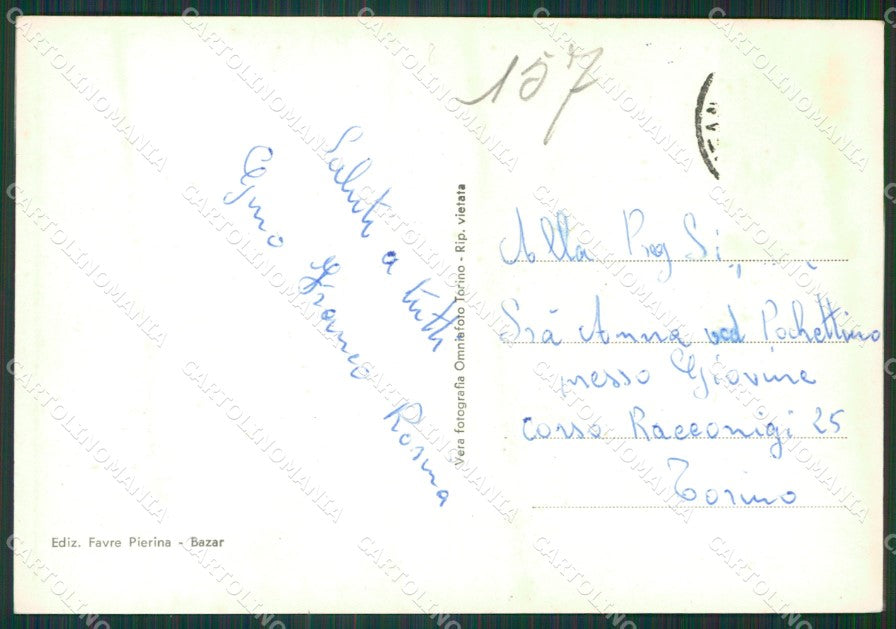 157
Saluti a tutti
Gino Franco Rosina
Vera fotografia Omniafoto Torino - Rip. vietata
Alla Preg Si,,
Sra Anna ved Pochettino
presso Giovine
corso Racconigi 25
Torino
Ediz. Favre Pierina - Bazar
CARTOLINOMANIA